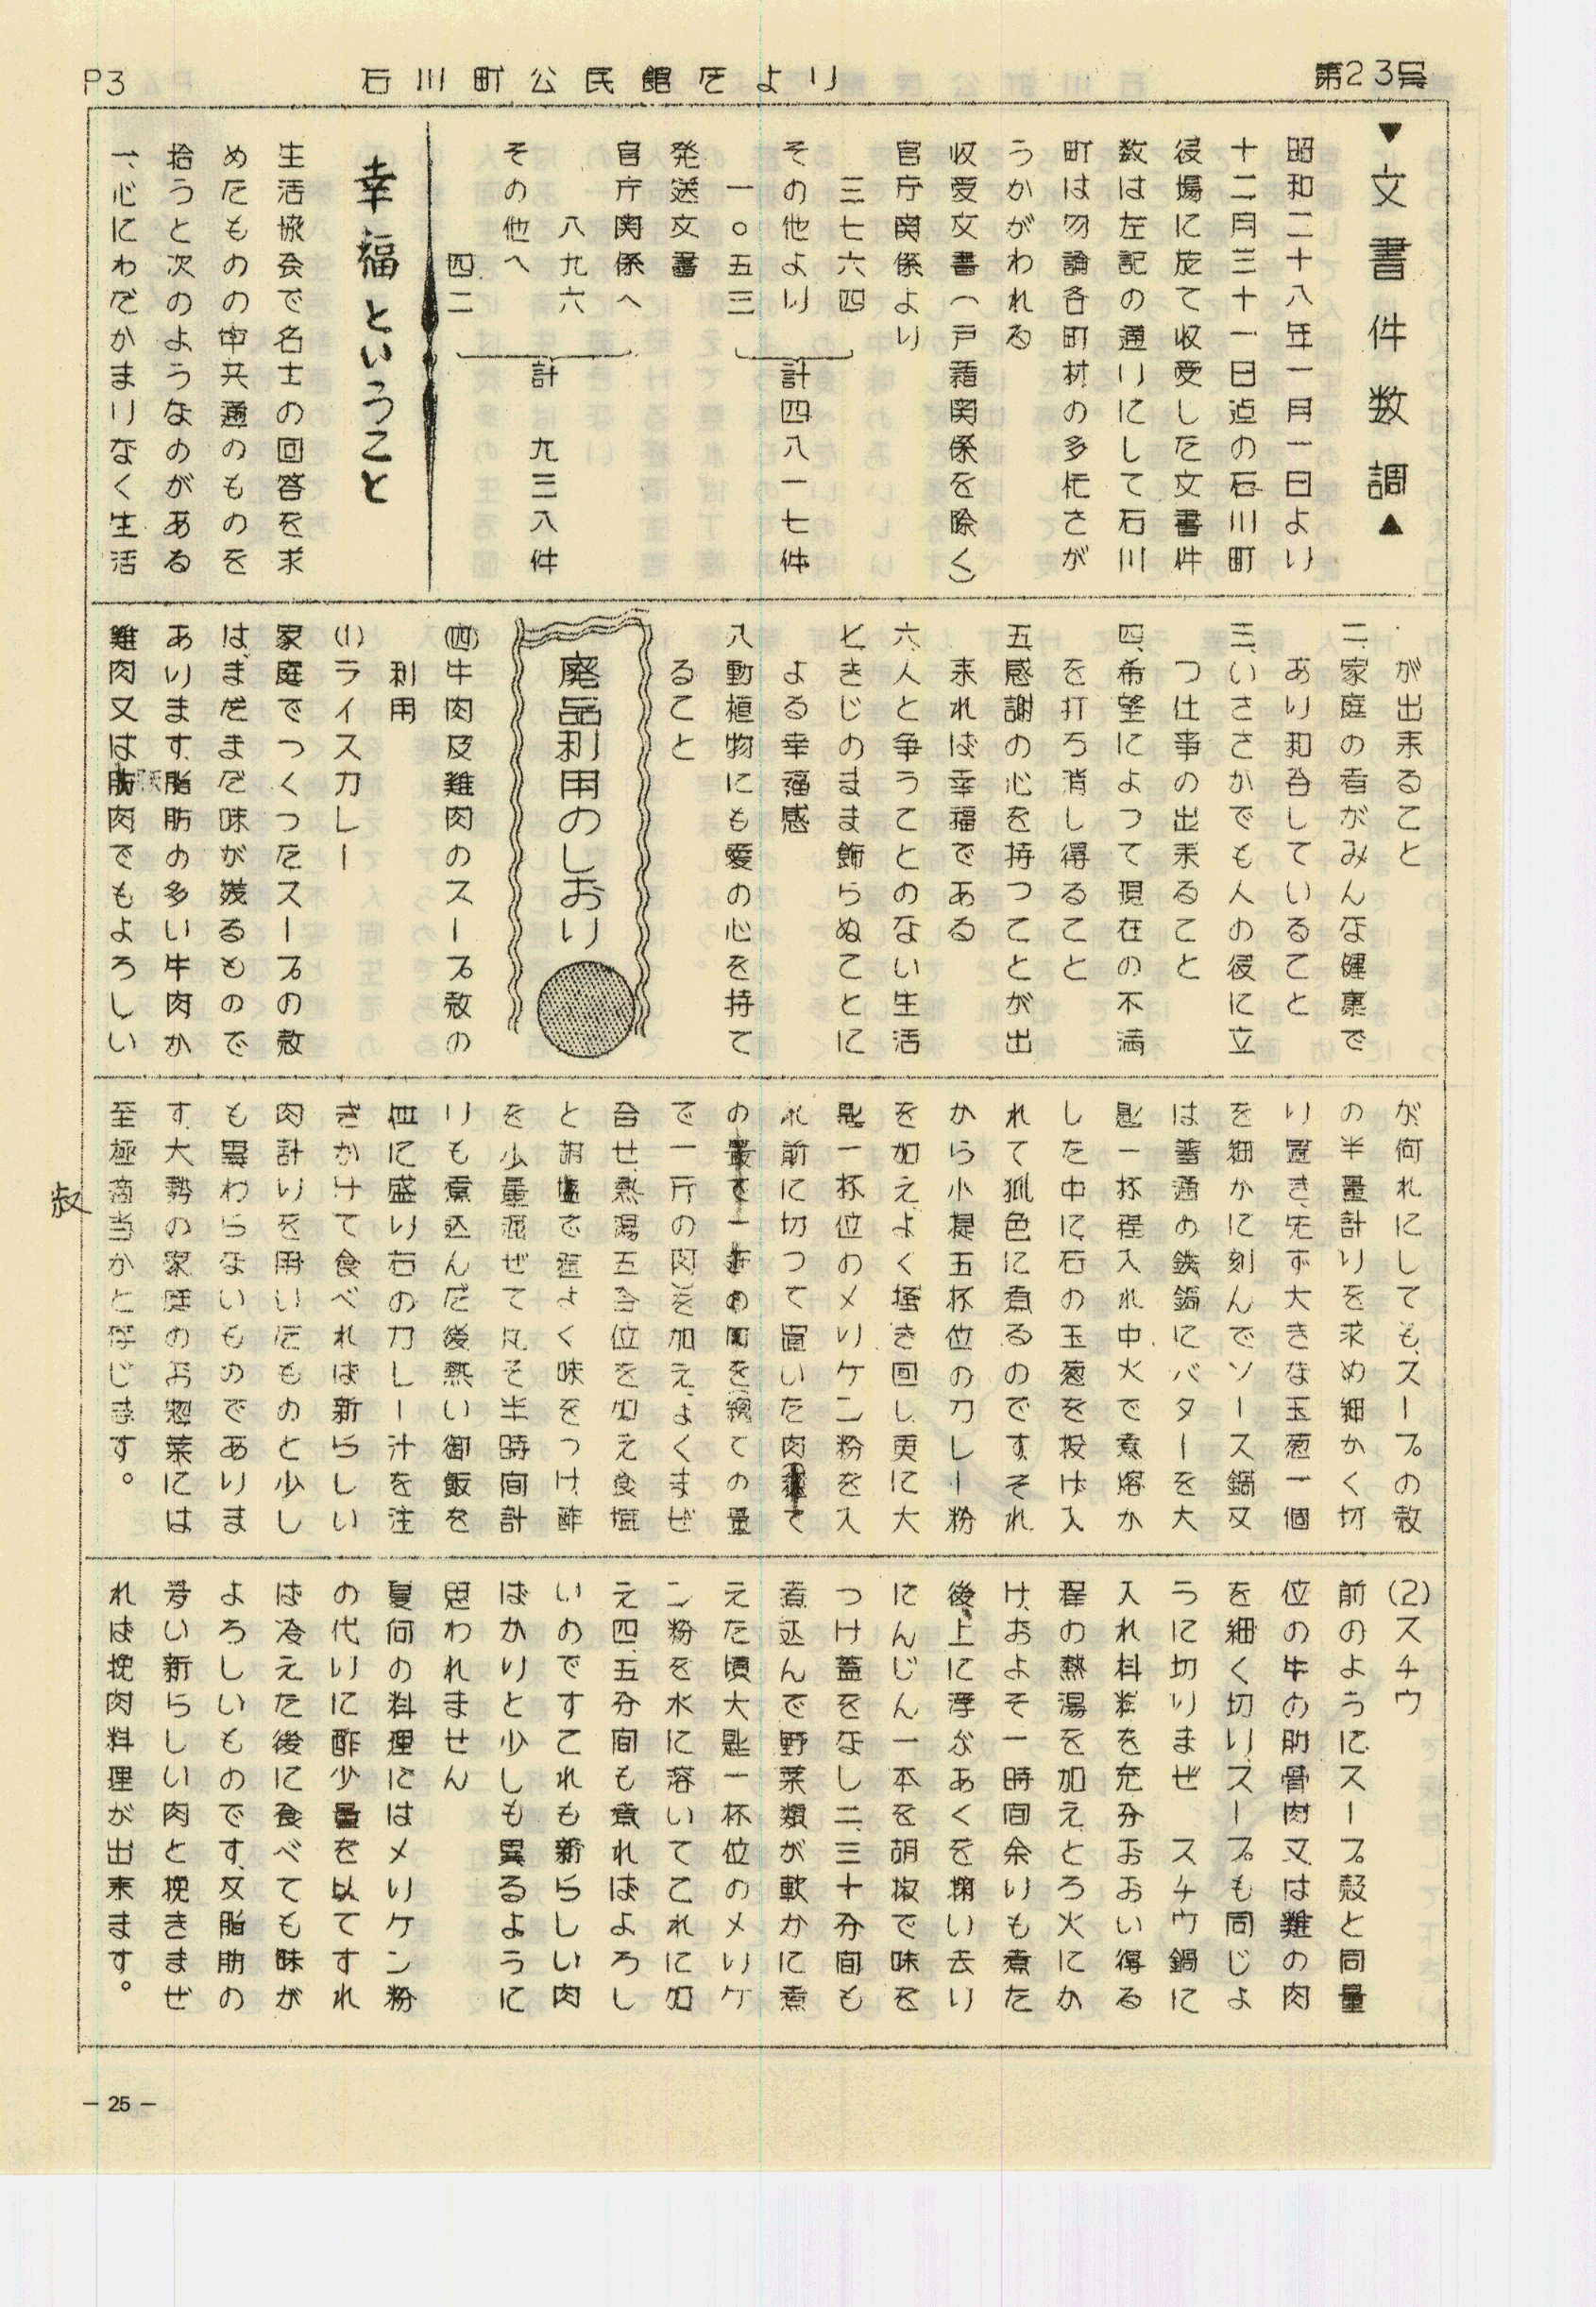 第23号
石川町公民館だより
P3
▼文書件数調▲
昭和二十八年一月一日より
十二月三十一日迠の石川町
役場に於て収受した文書件
数は左記の通りにして石川
町は勿論各町村の多忙さが
うかがわれる
収受文書(戸籍関係を除く)
官庁関係より
三七六四
その他より
一〇五三
計四八一七件
発送文書
官庁関係へ
八九六
その他へ
四二
計 九三八件
幸福ということ
生活協会で名士の回答を求
めたものの中共通のものを
拾うと次のようなのがある
一、心にわだかまりなく生活
が出来ること
二、家庭の者がみんな健康で
あり和合していること
三、いささかでも人の役に立
つ仕事の出来ること
四、希望によつて現在の不満
を打ち消し得ること
五、感謝の心を持つことが出
来れば幸福である
六、人と争うことのない生活
ときじのまま飾らぬことに
よる幸福感
八動植物にも愛の心を持て
ること
廃品利用のしおり
(四)牛肉及雞肉のスープ殻の
利用
(1)ライスカレー
家庭でつくつたスープの殻
は、まだまだ味が残るもので
あります、脂肪の多い牛肉か
雞肉又は豚肉でもよろしい
が、何れにしても、スープの殻
の半量計りを求め細かく切
り置き先ず大きな玉葱一個
を細かに刻んでソース鍋又
は普通の鉄鍋にバターを大
匙一杯程入れ中火で煮熔か
した中に、右の玉葱を投け入
れて狐色に煮るのです、それ
から小匙五杯位のカレー粉
を加えよく掻き回し更に大
匙一杯位のメリケン粉を入
れ前に切つて置いた肉
の
を総ての量
で一斤の肉を加え、よくまぜ
合せ、熱湯五合位を加え食塩
と胡塩で程よく味をつけ、酢
を少量混ぜて凡そ半時間計
りも煮込んだ後熱い御飯を
皿に盛り右のカレー汁を注
きかけて食べれば新らしい
肉計りを用いたものと少し
も異わらないものでありま
す、大勢の家庭のお惣菜には
至極適当かと存じます。
(2)スチウ
前のようにスープ殻と同量
位の牛の肋骨肉又は雞の肉
を細く切り、スープも同じよ
うに切りまぜ スチウ鍋に
入れ材料を充分おおい得る
程の熱湯を加えとろ火にか
け、およそ一時間余りも煮た
後、上に浮ぶあくを掬い去り
にんじん一本を胡椒で味を
つけ蓋をなし二、三十分間も
煮込んで野菜類が軟かに煮
えた頃大匙一杯位のメリケ
ン粉を水に溶いてこれに加
え四、五分間も煮ればよろし
いのですこれも新らしい肉
ばかりと少しも異るように
思われません
夏何の料理にはメリケン粉
の代りに酢少量を以てすれ
ば冷えた後に食べても味が
よろしいものです、又脂肪の
考い新らしい肉と挽きまぜ
れは挽肉料理が出来ます。
- 25 -